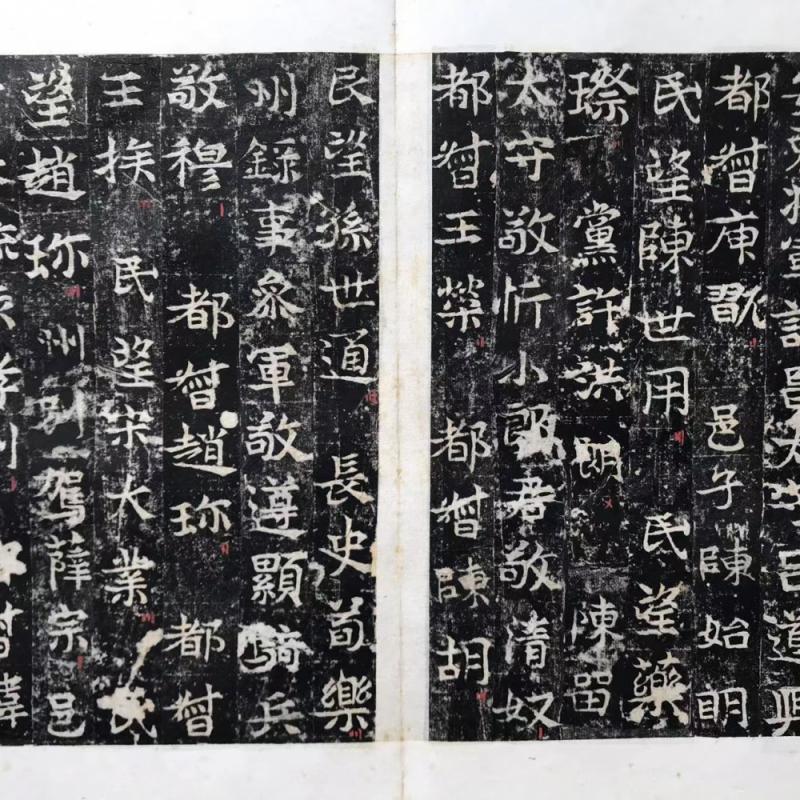 許昌太 呂遵興
都督庾 邑子陳始明
民望陳世用 民望藥
璨 黨許洪朗 陳留
太守敬忻小郎君敬清奴
都督王榮 都督陳胡
民望孫世通 長史荀樂
州錄事參軍敬遵顯騎兵
敬穆 都督趙珎 都督
王族 民望宋大業 民
望趙珎 州別駕薛宗 邑